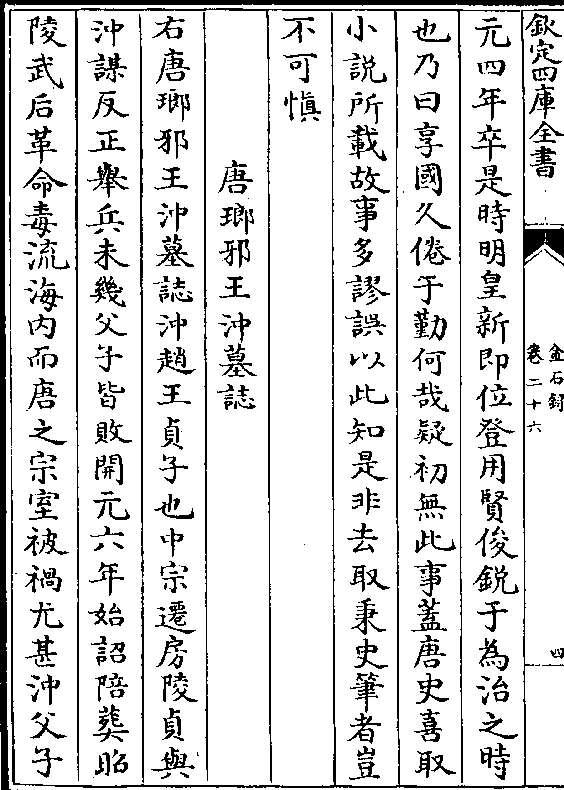 欽定四庫全書
金石録
卷二十六
四
元四年卒是時明皇新即位登用賢俊鋭于為治之時
也乃曰享國久倦于勤何哉疑初無此事蓋唐史喜取
小説所載故事多謬誤以此知是非去取秉史筆者豈
不可慎
唐瑯邪王沖墓誌
右唐瑯邪王沖墓誌沖趙王貞子也中宗遷房陵貞與
沖謀反正舉兵未幾父子皆敗開元六年始詔陪葬昭
陵武后革命毒流海内而唐之宗室被禍尤甚沖父子